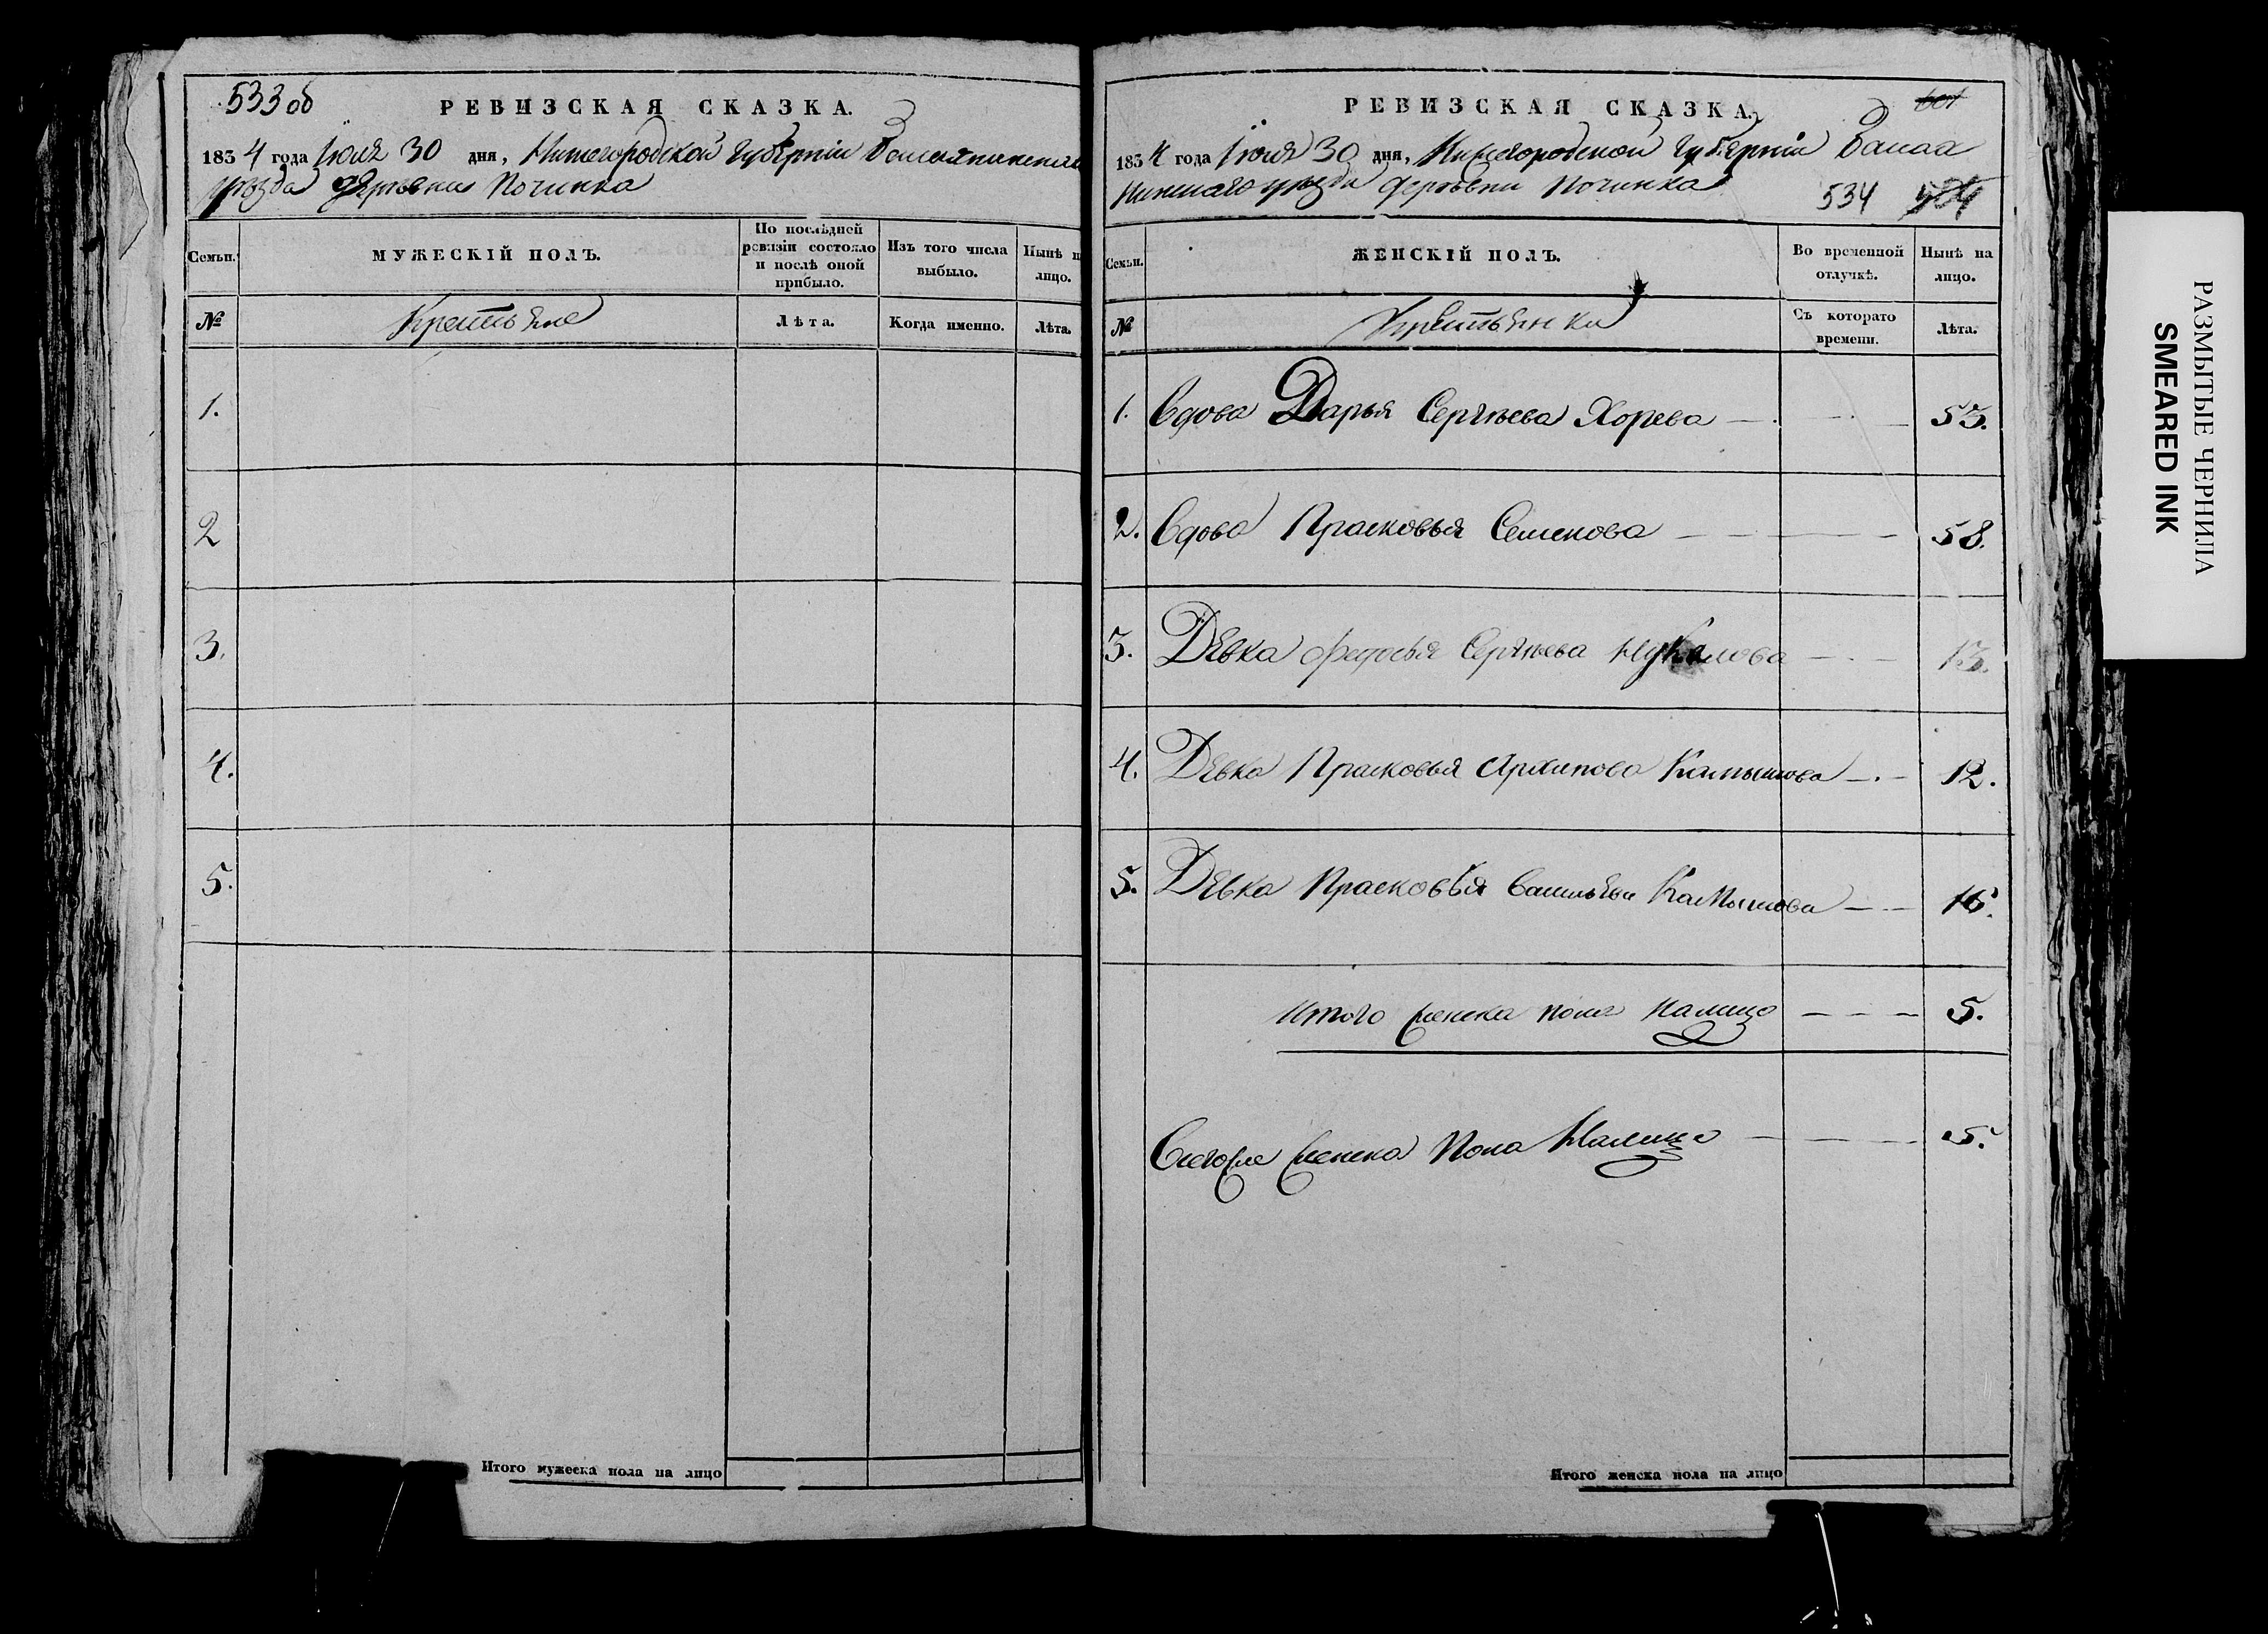 533 об
РЕВИЗСКАЯ СКАЗКА.
1834 года Іюля 30 дня, Нижегородской Губернiи
уѣзда деревни Починка
Семьи. МУЖЕСКІЙ ПОЛЪ. По послѣдней ревизіи состояло и послѣ оной прибыло. Изъ того числа выбыло. Нынѣ н лицо.
№ Крестьяне Лѣта. Когда именно. Лѣта.
1.
2
3.
4.
5.
Итого мужеска пола на лицо
РЕВИЗСКАЯ СКАЗКА.
1834 года Іюля 30 дня, Нижегородской Губернiи
уезда деревни Починка 534
Семьи. ЖЕНСКІЙ ПОЛЪ. Во временной отлучкѣ. Нынѣ на лицо.
№ Крестьянки Съ котораго времени. Лѣта.
1. Вдова Дарья Сергѣева Хорева 53.
2. Вдова Прасковья Семенова 58.
3. Девка Сергѣева 13.
4. Девка Прасковья Архипова Камышова 12.
5. Девка Прасковья Васильева Камышова 16.
Итого женска пола налицо 5.
Всегоже женска Пола Налицо 5.
Итого женска пола на лицо
РАЗМЫТЫЕ ЧЕРНИЛА
SMEARED INK